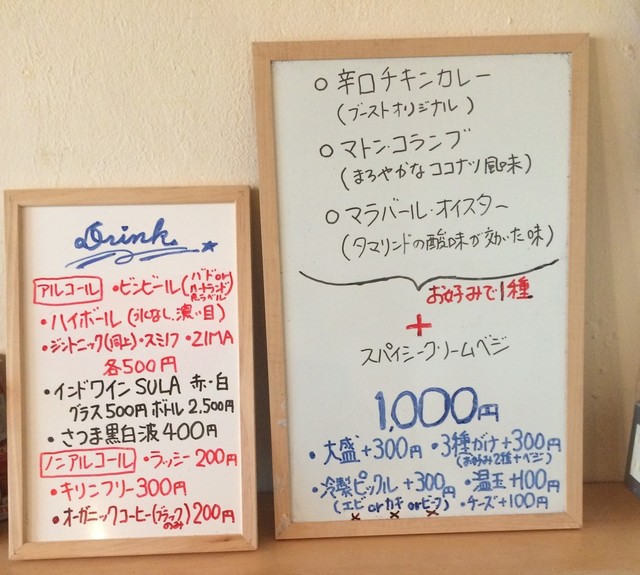 Drink
アルコール ・ビンビール(バドor
ハートランド
赤ラベル)
・ハイボール(氷なし、濃い目)
・ジントニック(同上)・スミノフ・ZIMA
各500円
・インドワイン SULA 赤・白
グラス500円 ボトル2,500円
・さつま黒白波400円
ノンアルコール ・ラッシー 200円
・キリンフリー300円
・オーガニックコーヒー(ブラックのみ)200円
○ 辛口チキンカレー
(ブーストオリジナル)
○ マトン・コランブ
(まろやかなココナツ風味)
○ マラバール・オイスター
(タマリンドの酸味が効いた味)
お好みで1種
+
スパイシークリームベジ
1,000円
・大盛+300円 ・3種がけ+300円
(お好み2種+ベジ)
・冷製ピックル+300円 ・温玉+100円
(エビorカキorビーフ) ・チーズ+100円